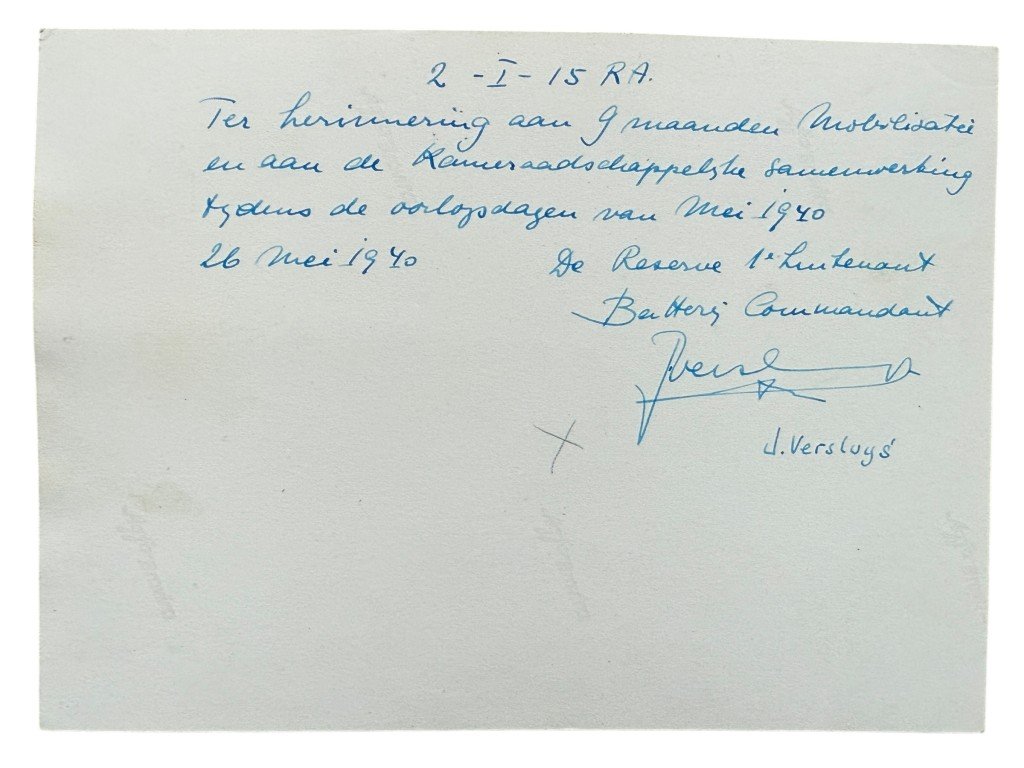 2 - I - 15 RA.
Ter herinnering aan 9 maanden Mobilisatie
en aan de Kameraadschappelyke samenwerking
tydens de oorlogsdagen van Mei 1940
26 Mei 1940 De Reserve 1e Luitenant
Batterij Commandant
J. Versluys